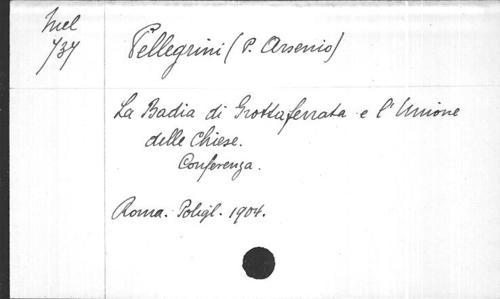 Mel
737
Pellegrini (P. Arsenio)
La Badia di Grottaferrata e l'Unione
delle Chiese.
Conferenza.
Roma. Poligl. 1904.